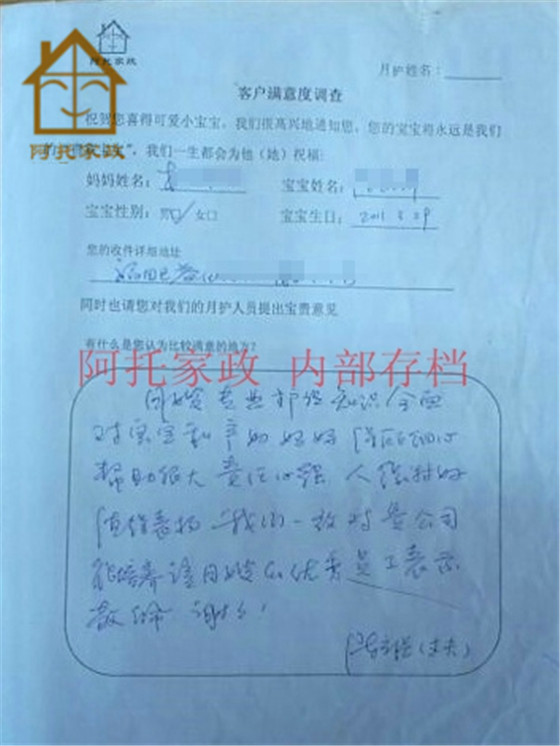 阿托家政
阿托家政
月护姓名：
客户满意度调查
祝贺您喜得可爱小宝宝，我们很高兴地通知您，您的宝宝将永远是我们
的 ”，我们一生都会为他（她）祝福：
妈妈姓名： 宝宝姓名：
宝宝性别：男□ 女□ 宝宝生日：2011 3 29
您的收件详细地址
福田区
同时也请您对我们的月护人员提出宝贵意见
有什么是您认为比较满意的地方？
阿托家政 内部存档
月嫂专业护理知识全面
对宝宝和产妇 细心
帮助很大 责任心强 人 好
值得表扬 我们一致对贵公司
能培养该月嫂的优秀员工表示
敬佩 谢谢！
（丈夫）